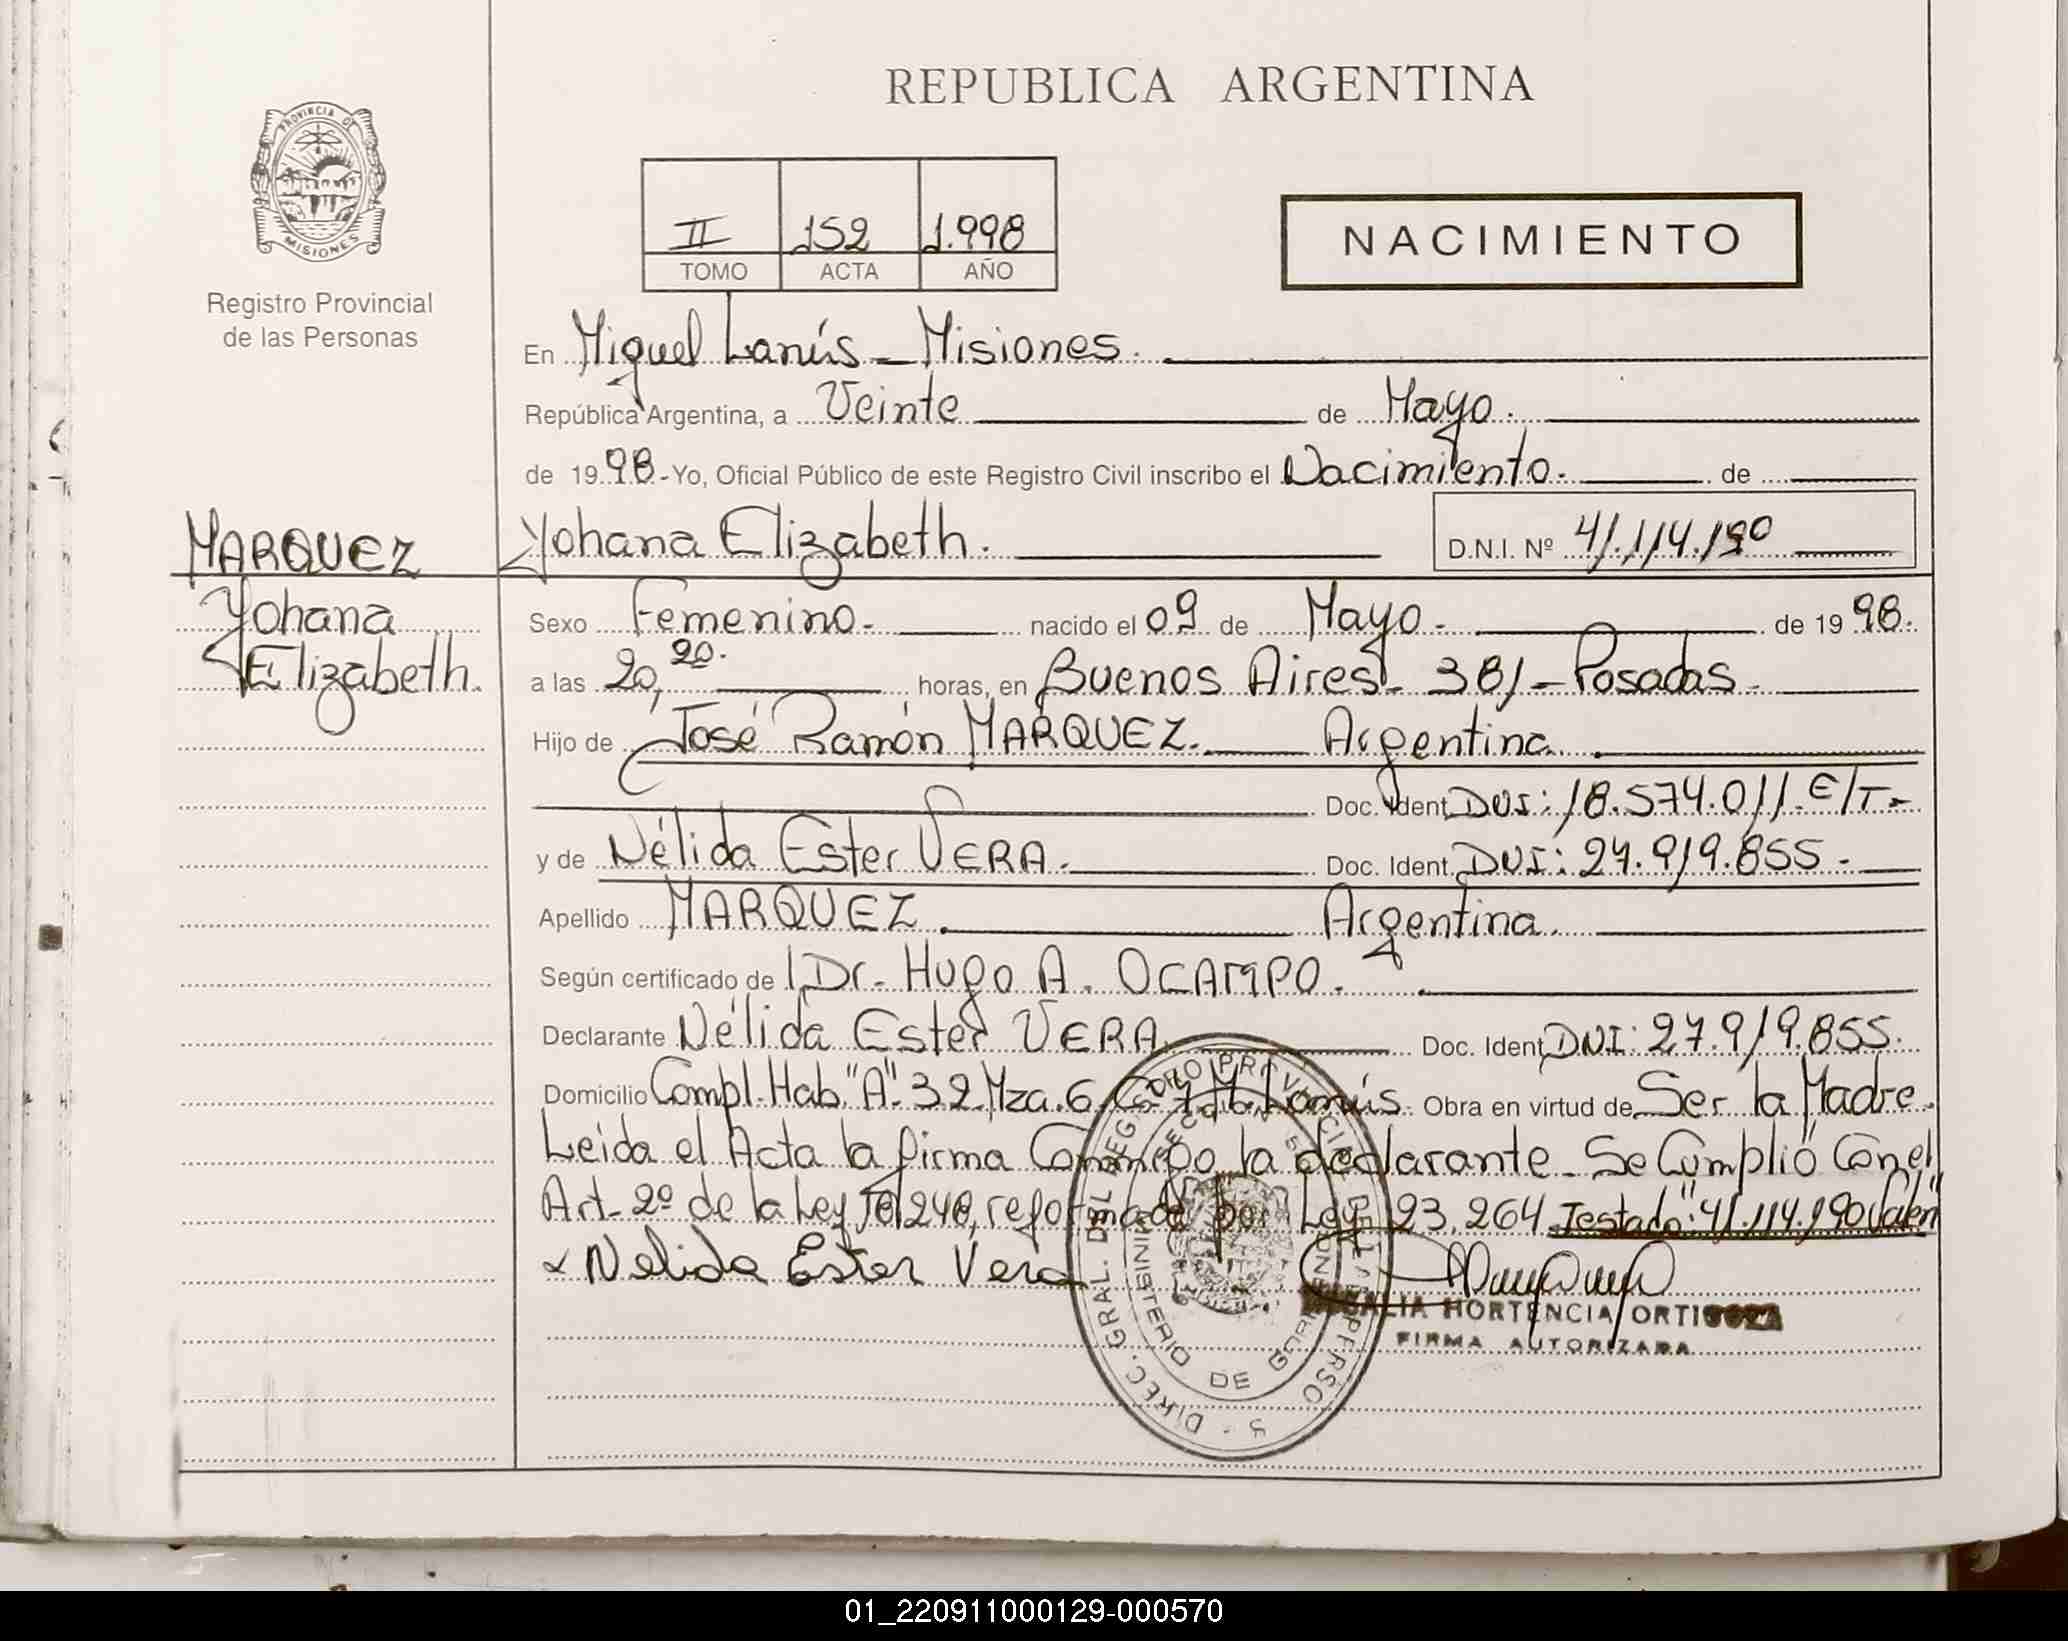 REPUBLICA ARGENTINA
PROVINCIA DE
MISIONES
Registro Provincial
de las Personas
II 152 1.998
TOMO ACTA AÑO
NACIMIENTO
En Miguel Lanús - Misiones.
República Argentina, a Veinte de Mayo.
de 1998.- Yo, Oficial Público de este Registro Civil inscribo el Nacimiento. de
MARQUEZ
Yohana
Elizabeth.
Yohana Elizabeth. D.N.I. Nº 41.114.190
Sexo Femenino. nacido el 09 de Mayo. de 1998.
a las 20,20. horas, en Buenos Aires - 381 - Posadas.
Hijo de José Ramón MARQUEZ. Argentina.
Doc. Ident. DNI: 18.574.011. E/T-
y de Nélida Ester VERA. Doc. Ident. DNI: 27.919.855.-
Apellido MARQUEZ. Argentina.
Según certificado de Dr. Hugo A. OCAMPO.
Declarante Nélida Ester VERA Doc. Ident. DNI: 27.919.855.
Domicilio Compl. Hab. "A" 32 Mza. 6 C. 7 M. Lanús. Obra en virtud de Ser la Madre.
Leída el Acta la firma Conmigo la declarante. Se Cumplió Con el
Art. 2º de la Ley reformada por Ley 23.264 Testado: "41.114.190 Valen"
Nelida Ester Vera
HORTENCIA ORTIGOZA
FIRMA AUTORIZADA
DIREC. GRAL. DEL REGISTRO PROVINCIAL DE LAS PERSONAS
MINISTERIO DE GOBIERNO
01_220911000129-000570